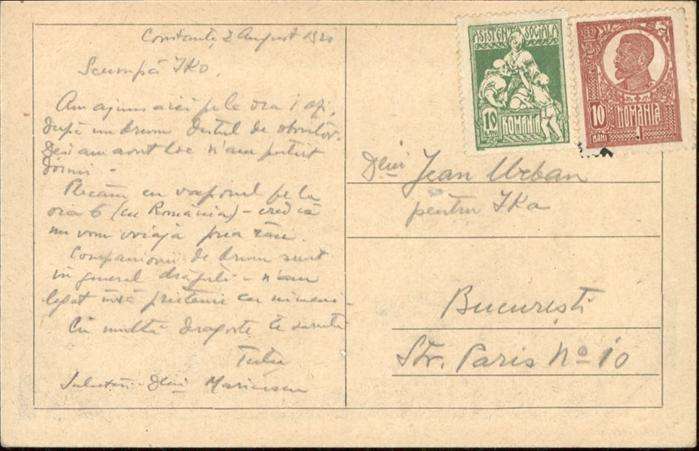 Constanța 2 August 1920
Scumpă Ika,
Am ajuns aici pe la ora 1 azi,
după un drum destul de obositor.
Deși am avut loc n'am putut
dormi -
Plecăm cu vaporul pe la
ora 6 (cu România) - cred că
nu vom voiaja prea rău.
Companionii de drum sunt
în general drăguți - n'am
legat însă prietenie cu nimeni -
Cu multă dragoste te sărută
Salutări Dlui
ASISTENȚA SOCIALĂ
10
ROMANIA
10
ROMANIA
BANI
Dlui Jean Urban
pentru Ika
București
Str. Paris No 10